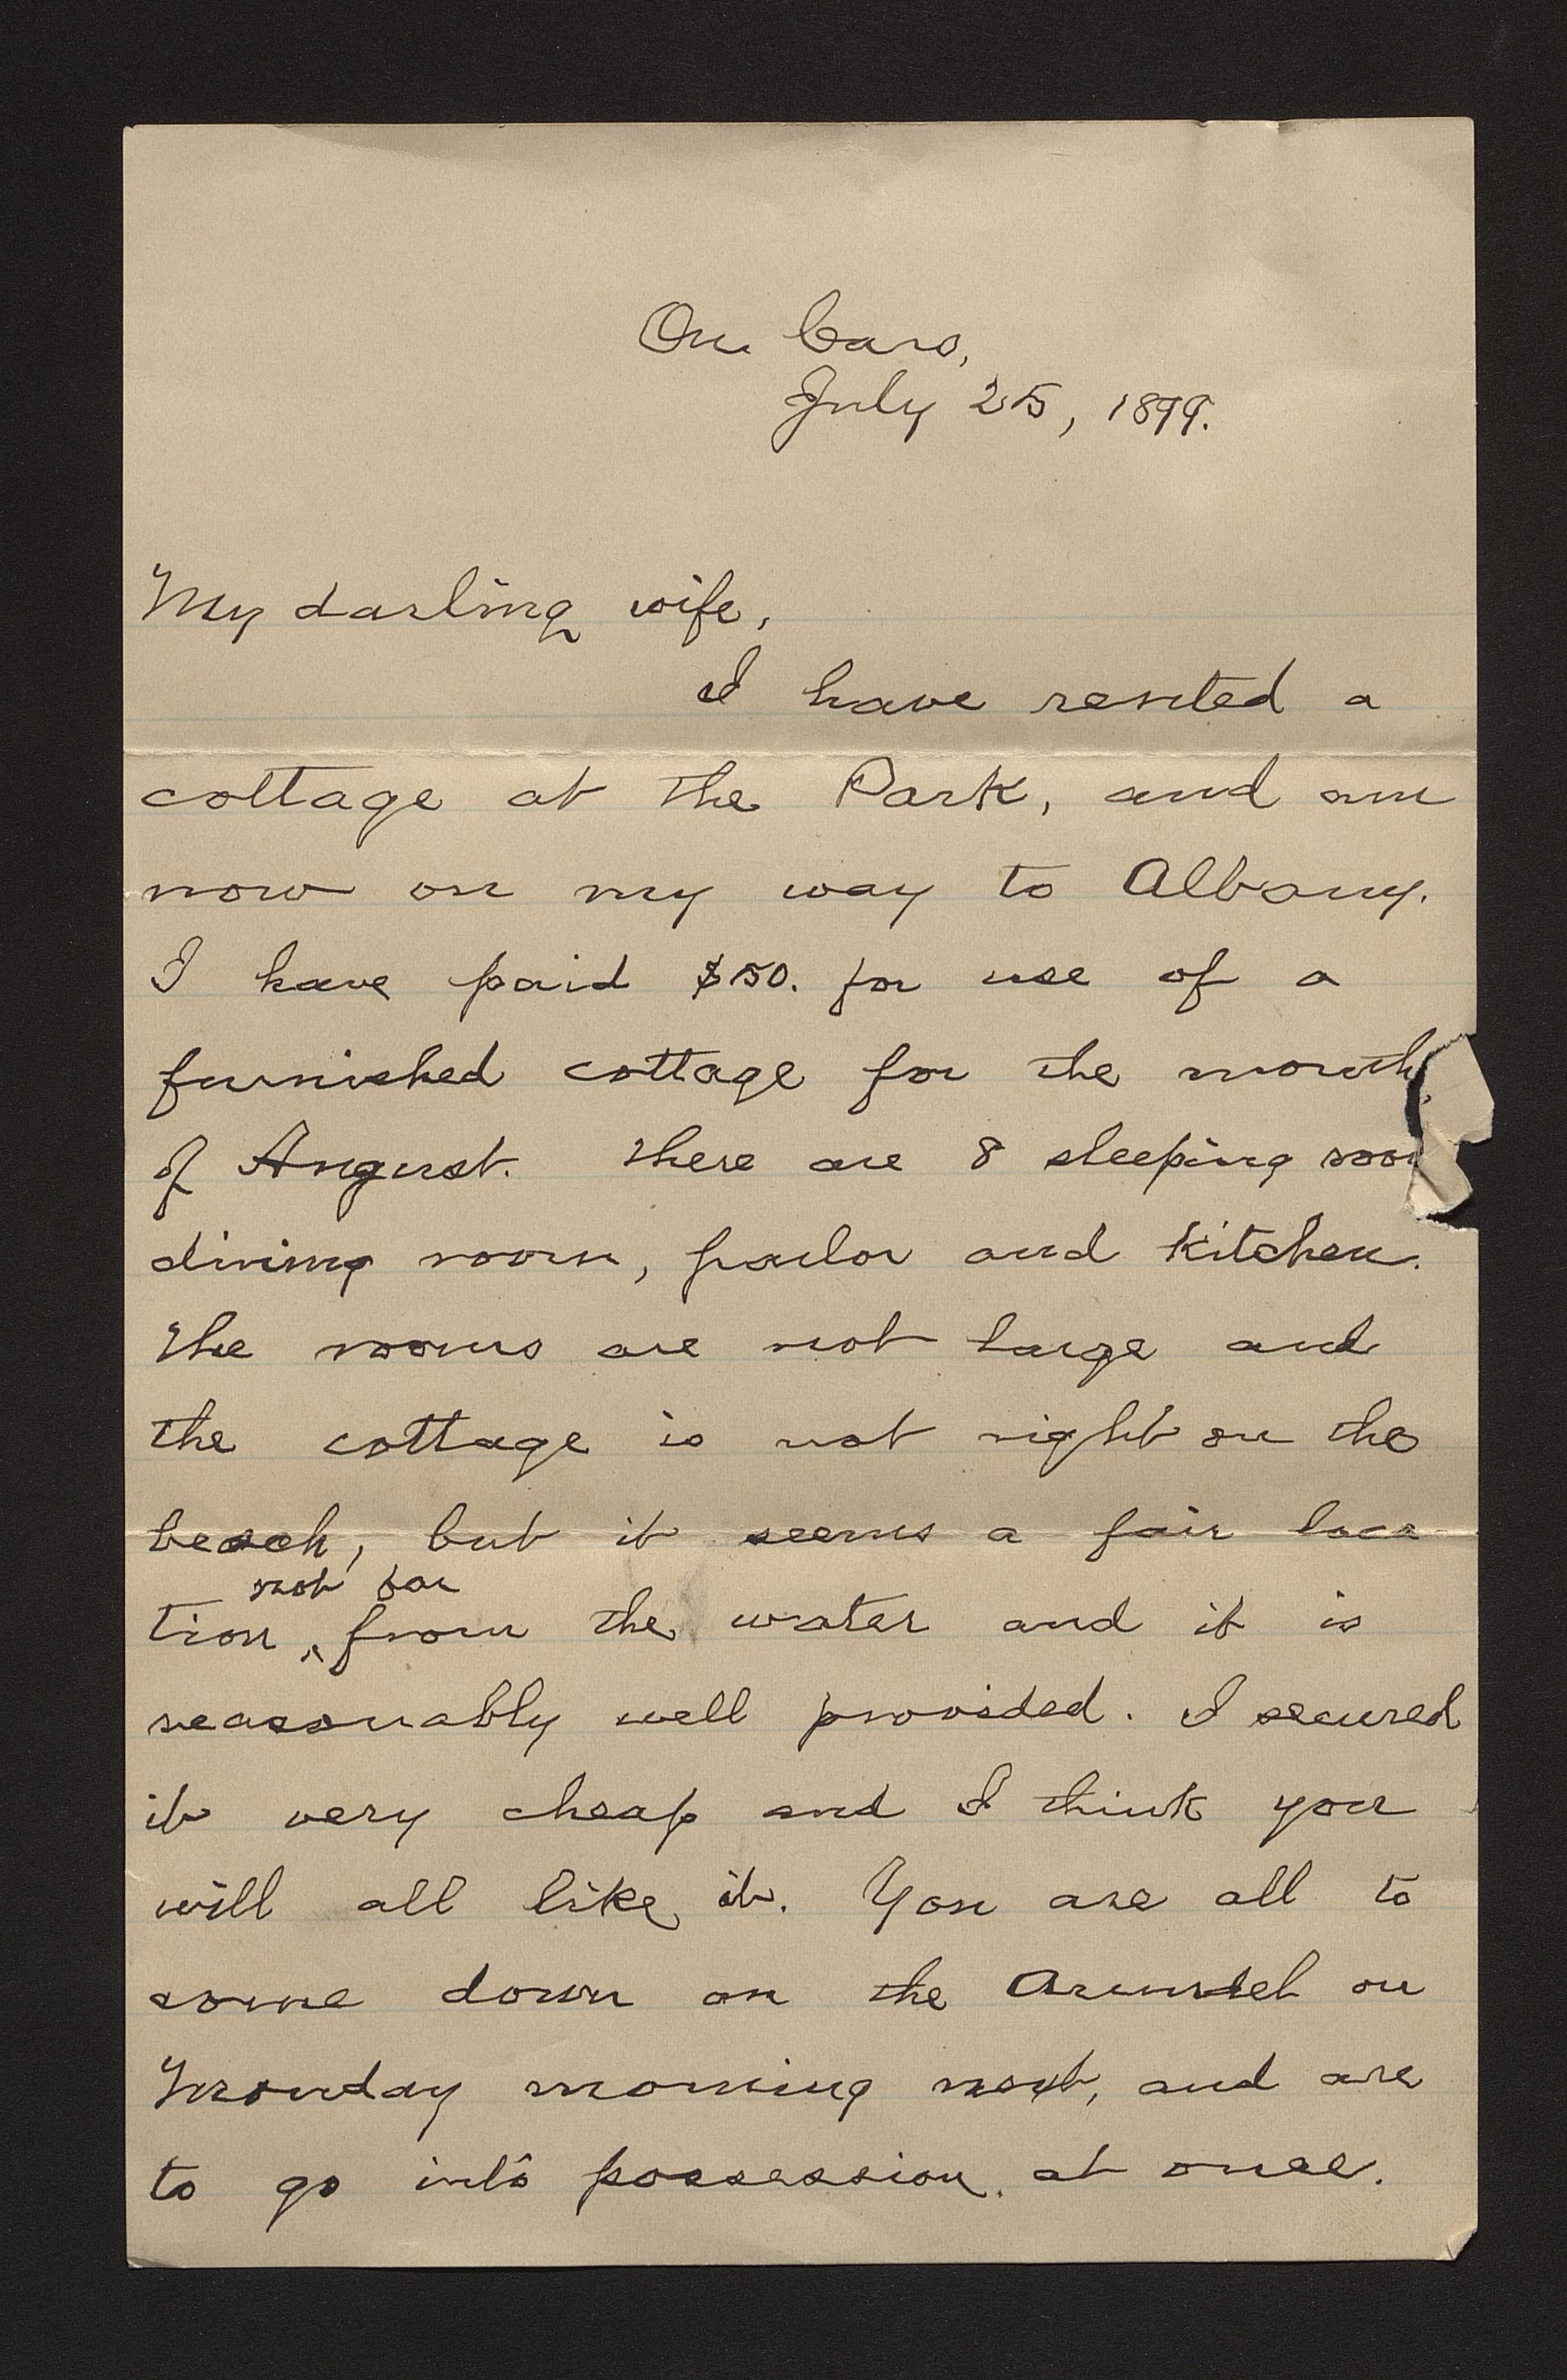 On Cars,
July 25, 1899.
My darling wife,
I have rented a
cottage at the Park, and am
now on my way to Albany.
I have paid $50. for use of a
furnished cottage for the month
of August. There are 8 sleeping roo
dining room, parlor and kitchen.
The rooms are not large and
the cottage is not right on the
beach, but it seems a fair loca
not far
tion ^ from the water and it is
reasonably well provided. I secured
it very cheap and I think you
will all like it. You are all to
come down on the Arundel on
Monday morning next, and are
to go into possession at once.